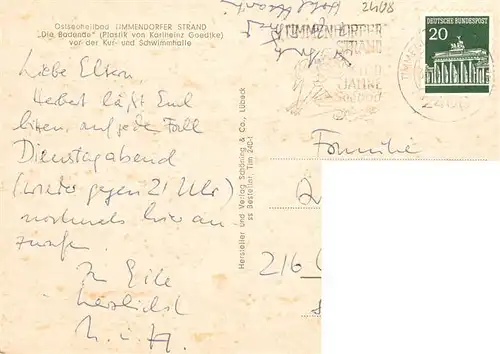 Ostseeheilbad TIMMENDORFER STRAND
„Die Badende" (Plastik von Karlheinz Goedtke)
vor der Kur- und Schwimmhalle
Liebe Eltern,
Herbert läßt Emil
bitten, auf jede Fall
Dienstagabend
(wieder gegen 21 Uhr)
nochmals hier an-
zurufen.
In Eile
herzlichst
H. u. H.
Hersteller und Verlag Schöning & Co., Lübeck
Bestellnr. Tim 240-1
2408
TIMMENDORFER
STRAND
JAHRE
Seebad
DEUTSCHE BUNDESPOST
20
2408
Familie
216